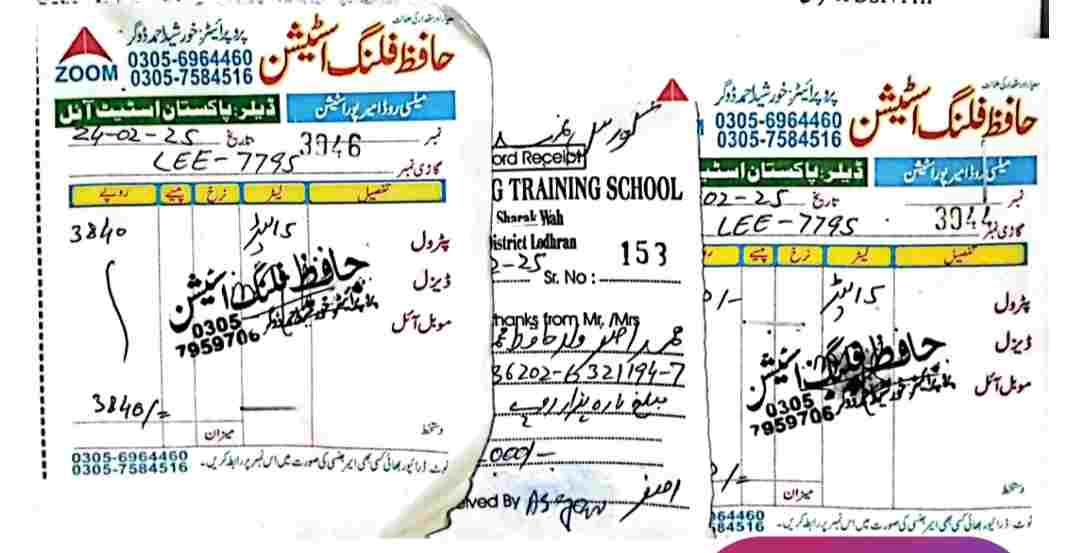 حافظ فلنگ اسٹیشن
پروپرائیٹر: خورشید احمد ڈوگر
0305-6964460
0305-7584516
ZOOM
ڈیلر: پاکستان اسٹیٹ آئل
میلسی روڈ امیر پور اسٹیشن
نمبر 3946 تاریخ 24-02-25
گاڑی نمبر LEE-7795
تفصیل لیٹر نرخ پیسے روپے
پٹرول 15 لیٹر 3840
ڈیزل
موبل آئل
حافظ فلنگ اسٹیشن
0305
7959706
3840/=
میزان
دستخط
0305-6964460
0305-7584516
نوٹ: ڈرائیور بھائی کسی بھی ایمرجنسی کی صورت میں اس نمبر پر رابطہ کریں۔
ord Receipt
G TRAINING SCHOOL
Sharak Wah
District Lodhran
2-25 Sr. No: 153
thanks from Mr, /Mrs
36202-6321194-7
مبلغ بارہ ہزار روپے
000/-
ved By
حافظ فلنگ اسٹیشن
پروپرائیٹر: خورشید احمد ڈوگر
0305-6964460
0305-7584516
ڈیلر: پاکستان اسٹیٹ
میلسی روڈ امیر پور اسٹیشن
نمبر 3944 تاریخ 02-25
گاڑی نمبر LEE-7795
تفصیل لیٹر نرخ پیسے
پٹرول 15 لیٹر
ڈیزل
موبل آئل
حافظ فلنگ اسٹیشن
0305
7959706
میزان
دستخط
64460
84516
نوٹ: ڈرائیور بھائی کسی بھی ایمرجنسی کی صورت میں اس نمبر پر رابطہ کریں۔